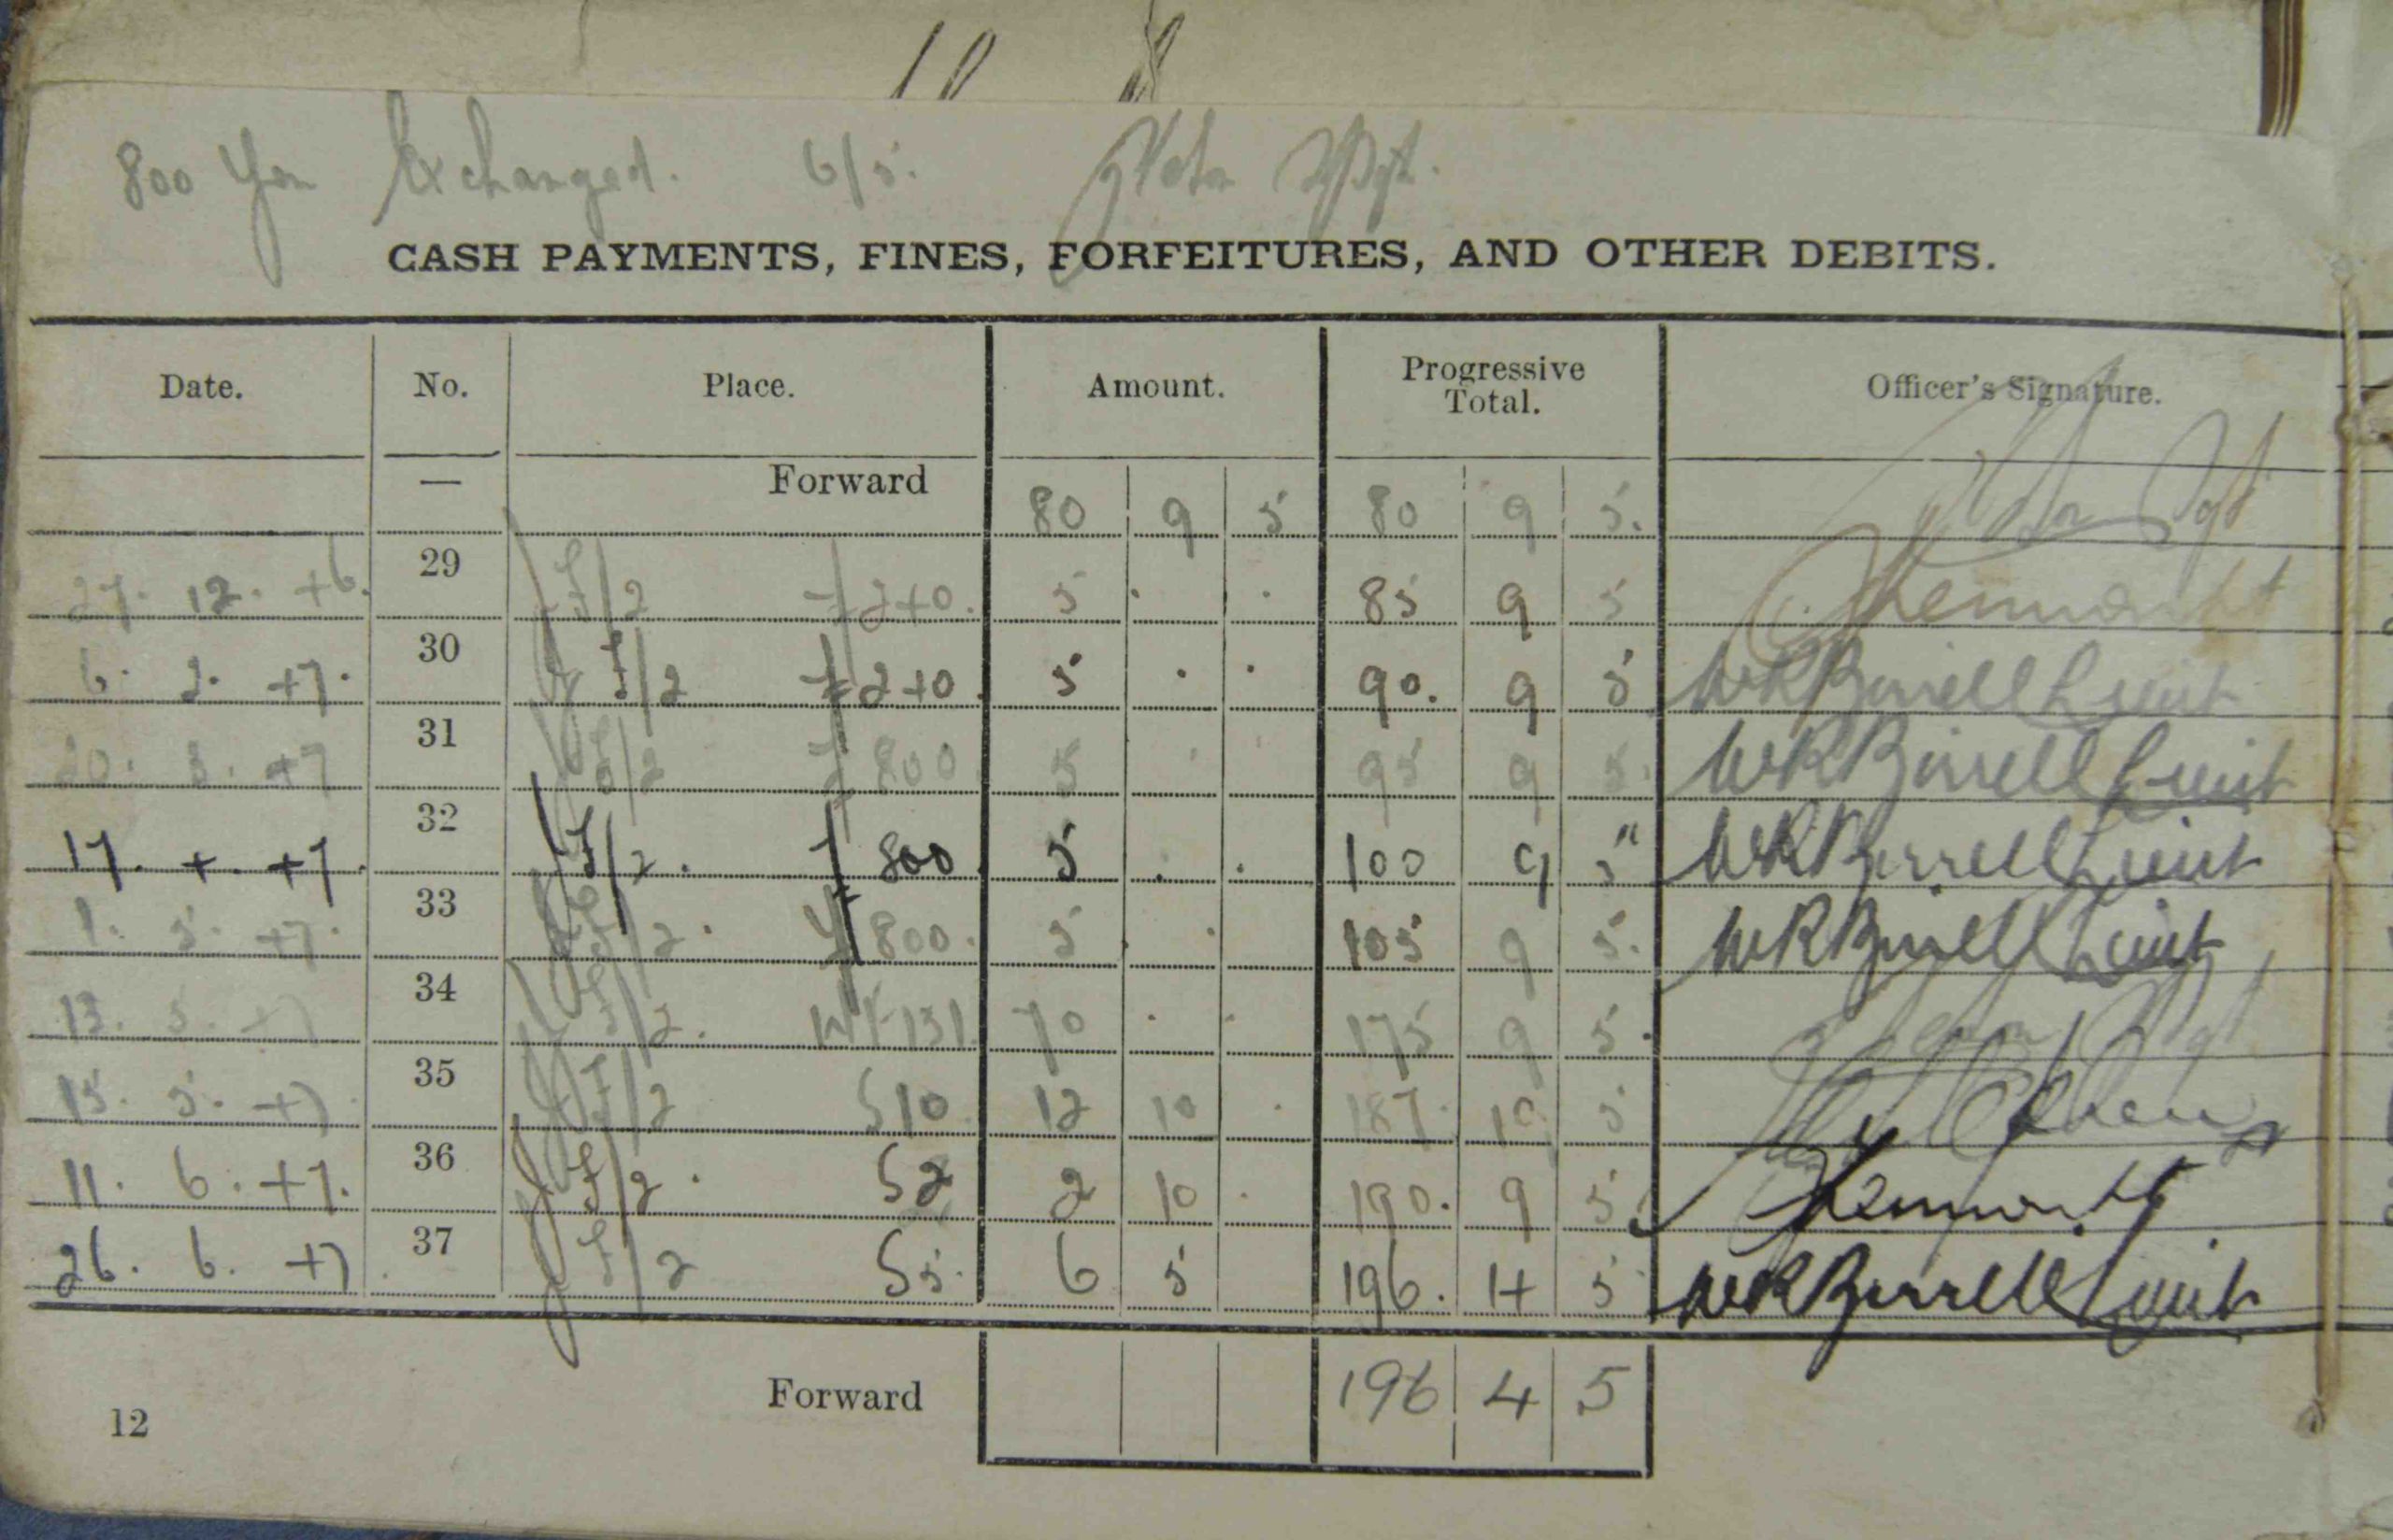 800 Yen Exchanged. 6/5.
CASH PAYMENTS, FINES, FORFEITURES, AND OTHER DEBITS.
Date. No. Place. Amount. Progressive Total. Officer's Signature.
— Forward 80 9 5 80 9 5.
27. 12. 46. 29 J/2 240. 5 . . 85 9 5
6. 2. 47. 30 J/2 240. 5 . . 90. 9 5 WR Birrell Lieut
20. 3. 47 31 J/2 800. 5 . . 95 9 5. WR Birrell Lieut
17. 4. 47. 32 J/2. 800. 5 . . 100 9 5" WR Birrell Lieut
1. 5. 47. 33 J/2. 800. 5 . . 105 9 5. WR Birrell Lieut
13. 5. 47 34 J/2. 131. 70 . . 175 9 5.
15. 5. 47. 35 J/2 S10 12 10 . 187. 19 5
11. 6. 47. 36 J/2. S2 2 10 . 190. 9 5.
26. 6. 47. 37 J/2 S5. 6 5 . 196. 14 5 WR Birrell Lieut
Forward 196 4 5
12